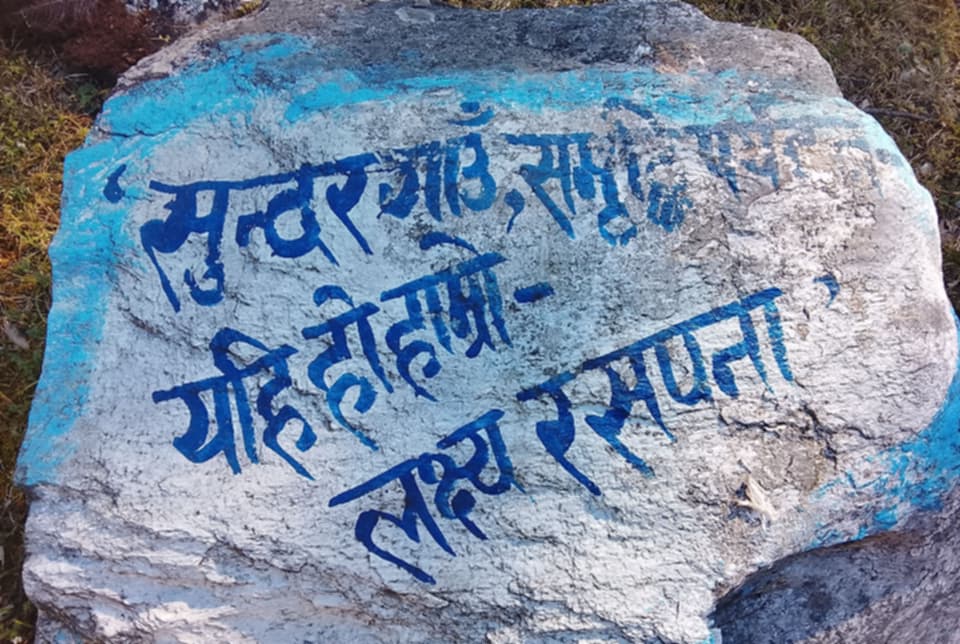 ‘सुन्दर गाउँ, समृद्धि
यहि हो हाम्रो -
लक्ष्य र सपना’